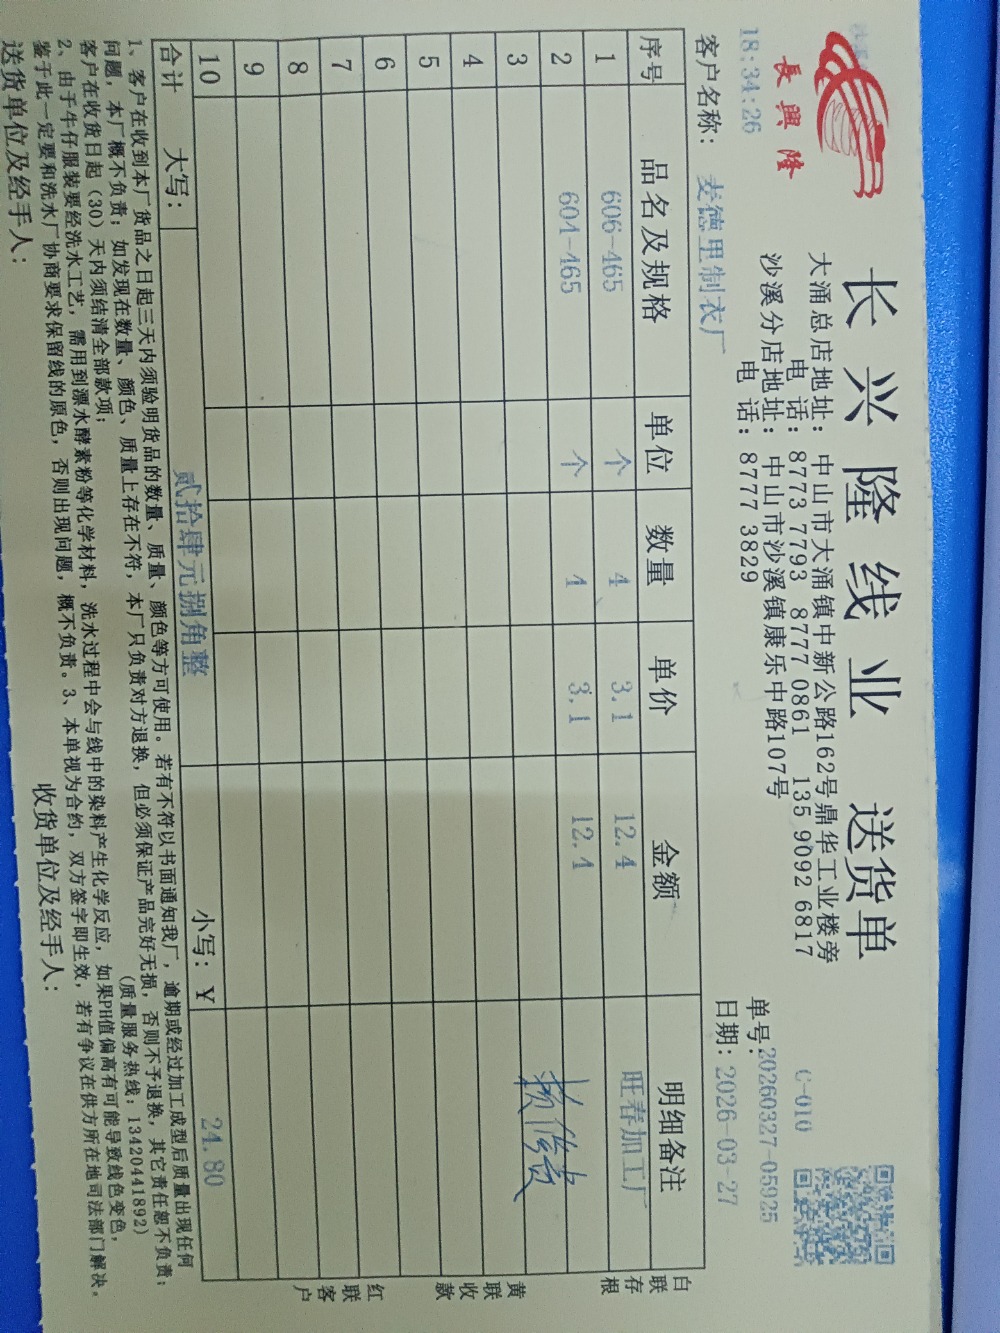 長興隆
长兴隆线业 送货单
C-010
大涌总店地址：中山市大涌镇中新公路162号鼎华工业楼旁
电 话：8773 7793 8777 0861 135 9092 6817
沙溪分店地址：中山市沙溪镇康乐中路107号
电 话：8777 3829
18:34:26
单号：20260327-05925
日期：2026-03-27
客户名称：麦德里制衣厂
序号 品名及规格 单位 数量 单价 金额 明细备注
1 606-465 个 4 3.1 12.4 旺春加工厂
2 604-465 个 4 3.1 12.4
3
4
5
6
7
8
9
10
合计 大写：贰拾肆元捌角整 小写：¥ 24.80
白联存根
黄联收款
红联客户
1、客户在收到本厂货品之日起三天内须验明货品的数量、质量、颜色等方可使用。若有不符以书面通知我厂，逾期或经过加工成型后质量出现任何
问题，本厂概不负责；如发现在数量、颜色、质量上存在不符，本厂只负责对方退换，但必须保证产品完好无损，否则不予退换，其它责任恕不负责；
客户在收货日起（30）天内须结清全部款项； （质量服务热线：13420441892）
2、由于牛仔服装要经洗水工艺，需用到漂水酵素粉等化学材料，洗水过程中会与线中的染料产生化学反应，如果PH值偏高有可能导致线色变色，
鉴于此一定要和洗水厂协商要求保留线的原色，否则出现问题，概不负责。3、本单视为合约，双方签字即生效，若有争议在供方所在地司法部门解决。
送货单位及经手人： 收货单位及经手人：